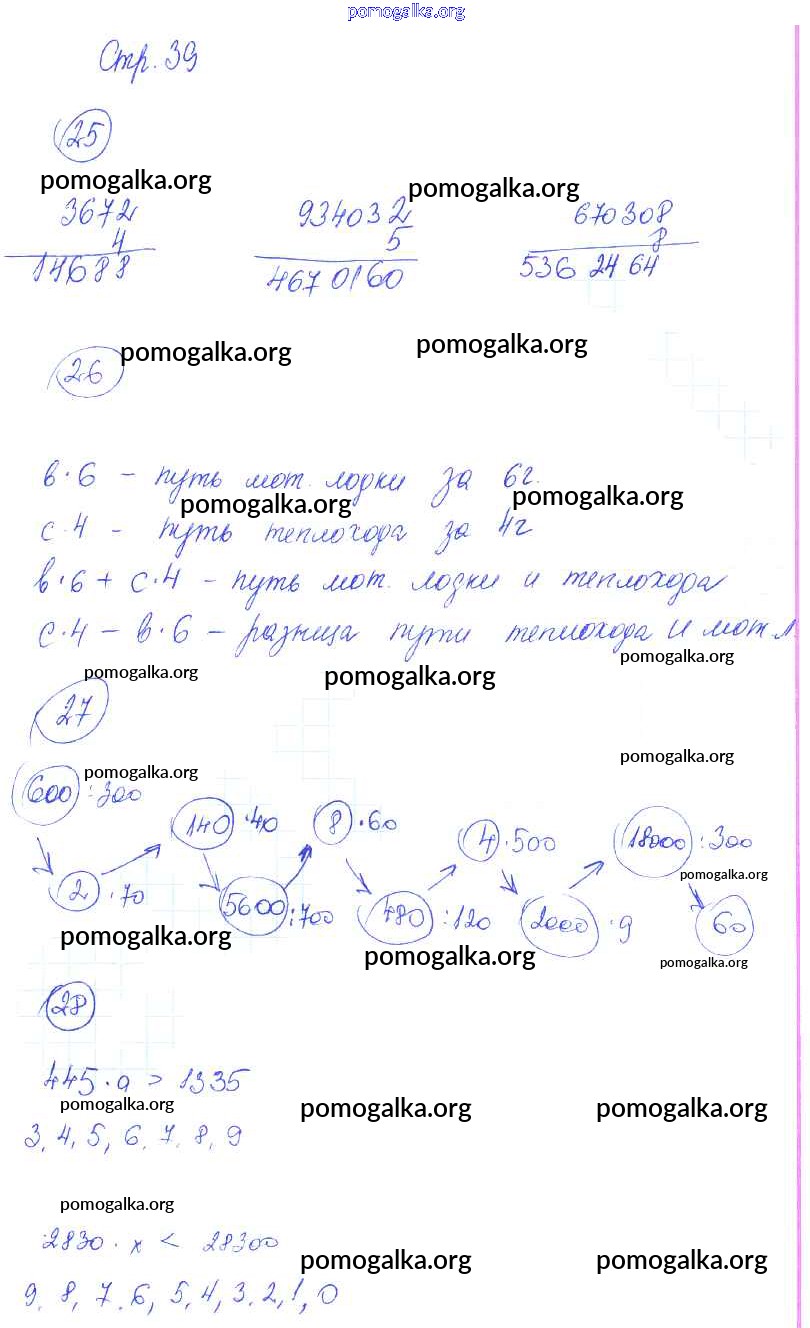 pomogalka.org
Стр. 39
25
pomogalka.org pomogalka.org
3672 934032 670308
4 5 8
14688 4670160 5362464
26 pomogalka.org pomogalka.org
в·6 – путь мот. лодки за 6г.
pomogalka.org pomogalka.org
с·4 – путь теплохода за 4г
в·6 + с·4 – путь мот. лодки и теплохода
с·4 – в·6 – разница пути теплохода и мот.л.
pomogalka.org pomogalka.org pomogalka.org
27
pomogalka.org
pomogalka.org
600 : 300
140 ·40 8 ·60 4 ·500 18000 :300
pomogalka.org
2 ·70 5600 :700 480 :120 2000 ·9 60
pomogalka.org pomogalka.org pomogalka.org
28
445·а > 1335
pomogalka.org pomogalka.org pomogalka.org
3, 4, 5, 6, 7, 8, 9
pomogalka.org
2830 · х < 28300
pomogalka.org pomogalka.org
9, 8, 7, 6, 5, 4, 3, 2, 1, 0